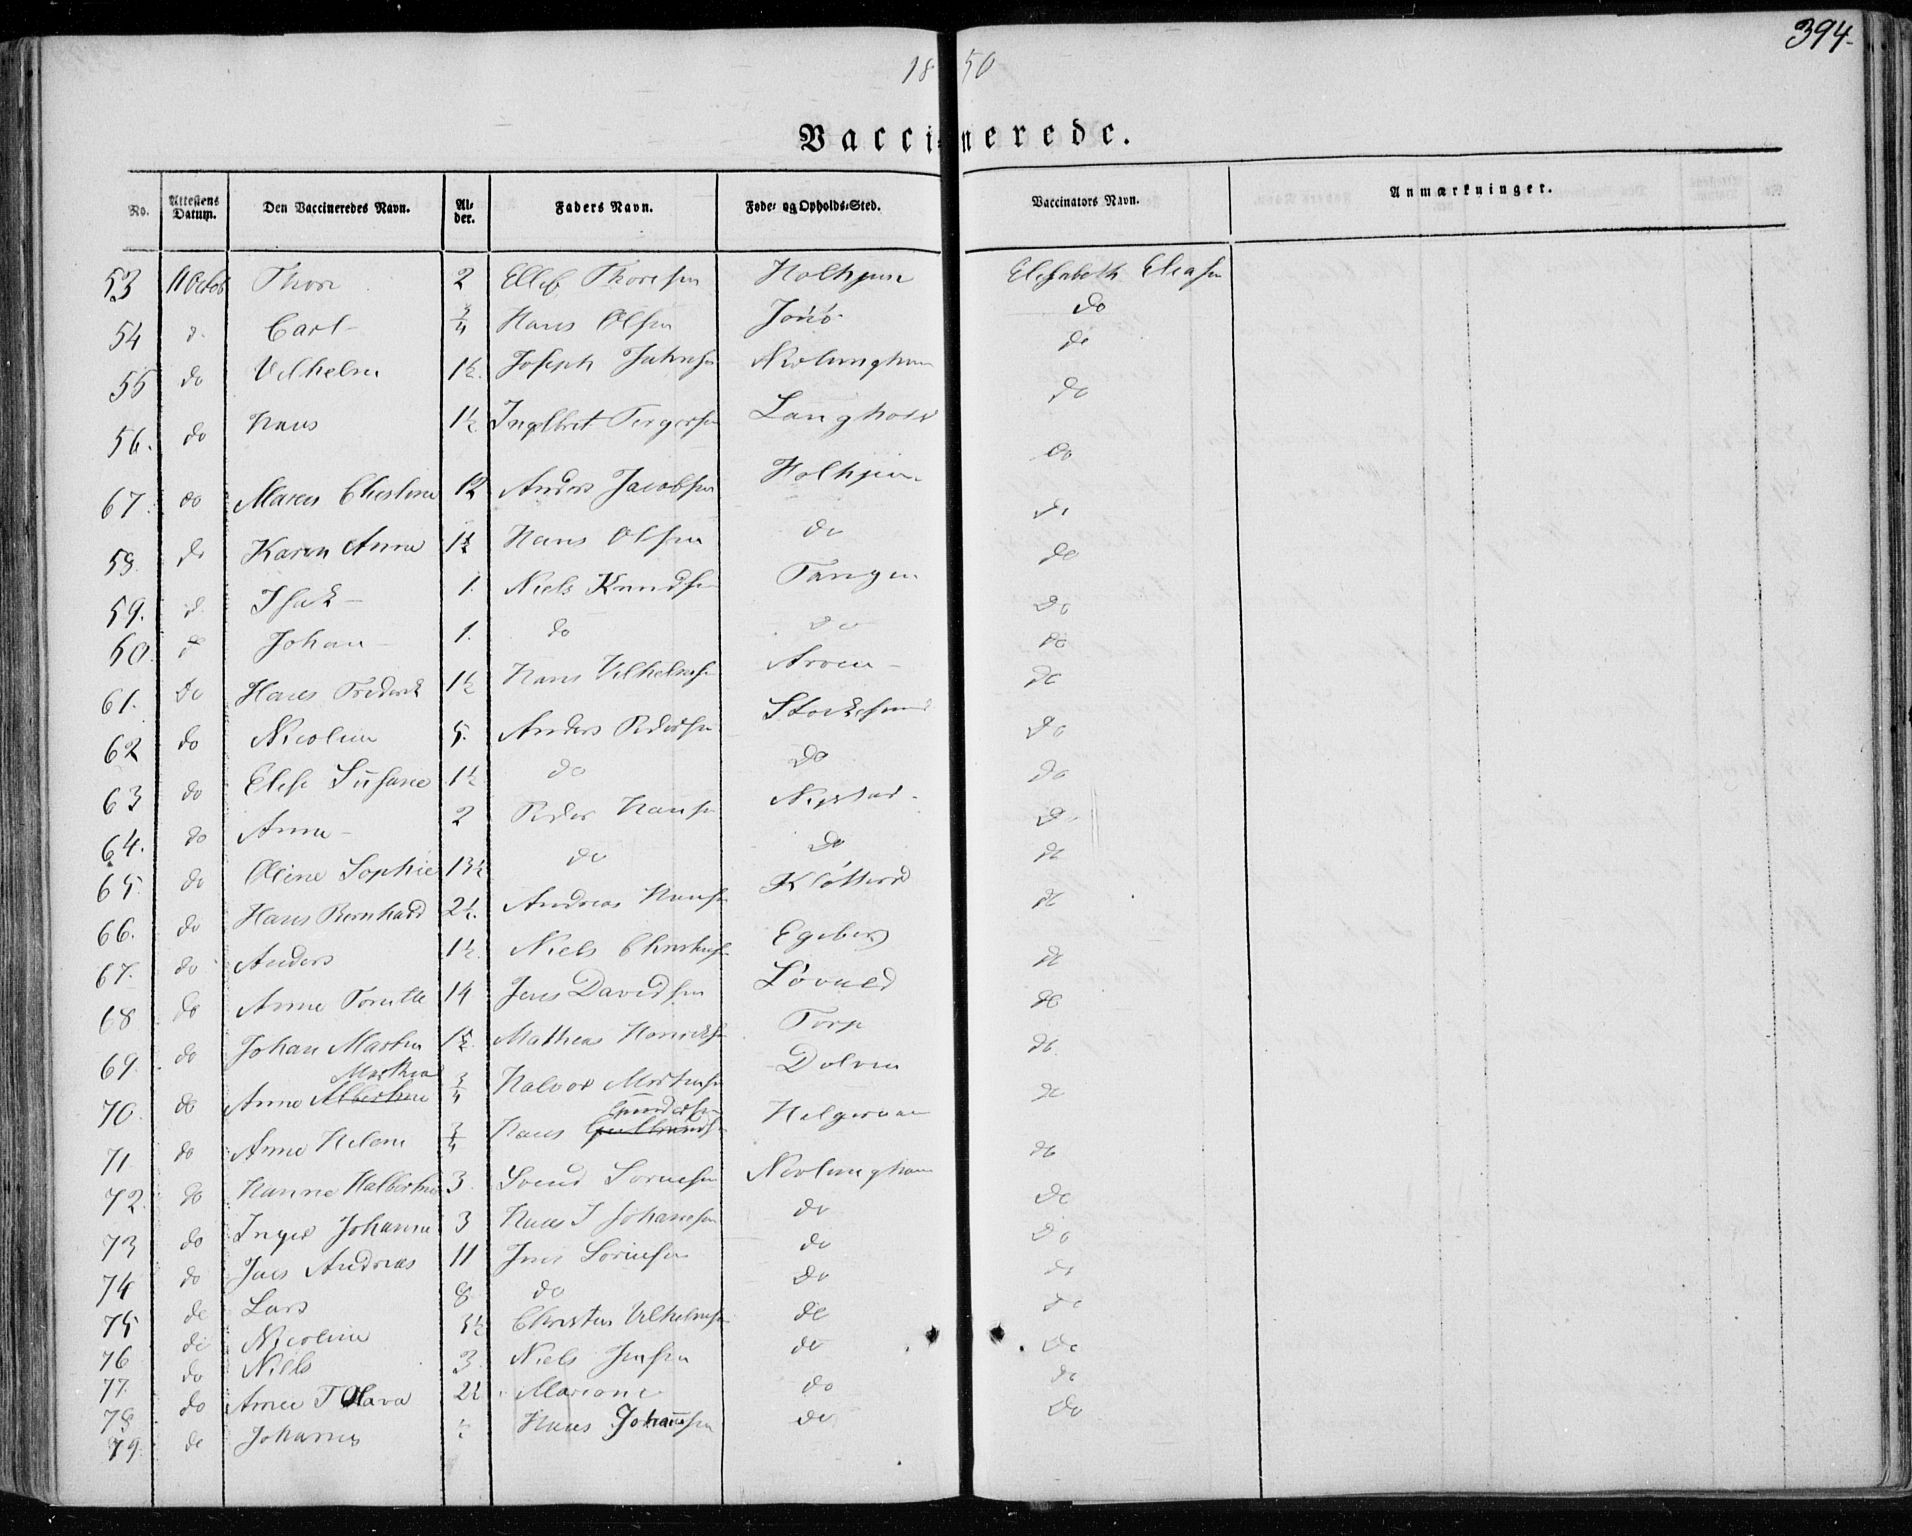 394.
1850
Vaccinerede.
No. Attestens Datum. Den Vaccineredes Navn. Alder. Faders Navn. Føde- og Opholds-Sted. Vaccinators Navn. Anmærkninger.
53 11 Octob Thore 2 Ellef Thoresen Holhjem Elisabeth Eliasen
54 d. Carl 3/4 Hans Olsen Jonø do
55 do Vilhelm 1½. Joseph Nevlunghavn do
56. do Hans 1½ Ingelbret Langhold do
67. do Maren Christine 12 Anders Jacobsen Holhjem do
58. do Karen Anne 1½ Hans Olsen do do
59. d. Isak 1. Niels Knudsen Tangen do
60. d Johan 1. do do do
61. do Hans Frederik 1½ Hans Vilhelmsen Aroen do
62 do Nicoline 5. Anders Pedersen do
63 do Elise Susane 1½ do do do
64. do Anne 2 Peder Hansen Nystad do
65 do Oline Sophie 13½ do do do
66. do Hans Bernhard 2½. Andreas Hansen do
67. do Anders 1½. Niels Christensen do
68 do Anne Torine 14 Jens Davidsen Løvald do
69. do Johan Martin 1½ Mathias Henriksen Torp do
Mathea
70. do Anne Albertine 3/4 Halvor Mortensen Dolven do
Gundersen
71 do Anne Helene 3/4 Hans Gulbrandsen Helgeroaen do
72. do Hanne Halbertine 3. Svend Sørensen Nevlunghavn do
73 do Inger Johanne 3 Hans J Johannesen do do
74 do Jens Andreas 11 Jens Sørensen do do
75 do Lars 8 do do do
76 do Nicoline Christen Vilhelmsen do do
77. do Niels 3. Niels Jensen do do
78 do Anne T Olava 2½ Mariane do do
79. do Johannes ½ Hans Johannesen do do